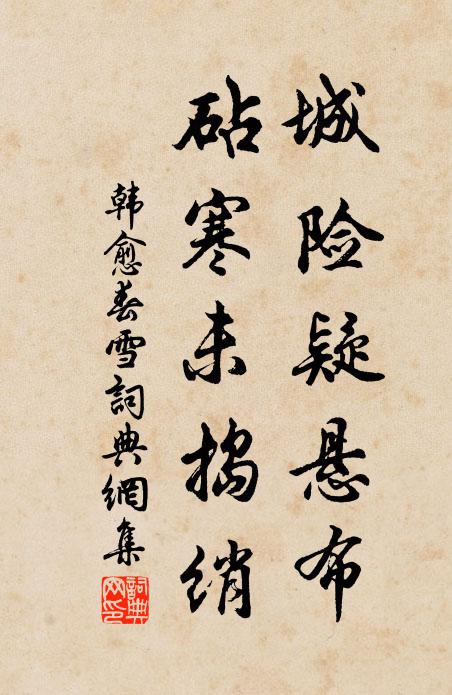 城险疑悬布
砧寒未捣绡
韩愈春雪詞典網集
詞典网印